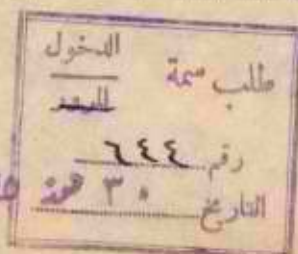 طلب سمة
الدخول
للمرور
رقم ٦٤٤
التاريخ ٣٠